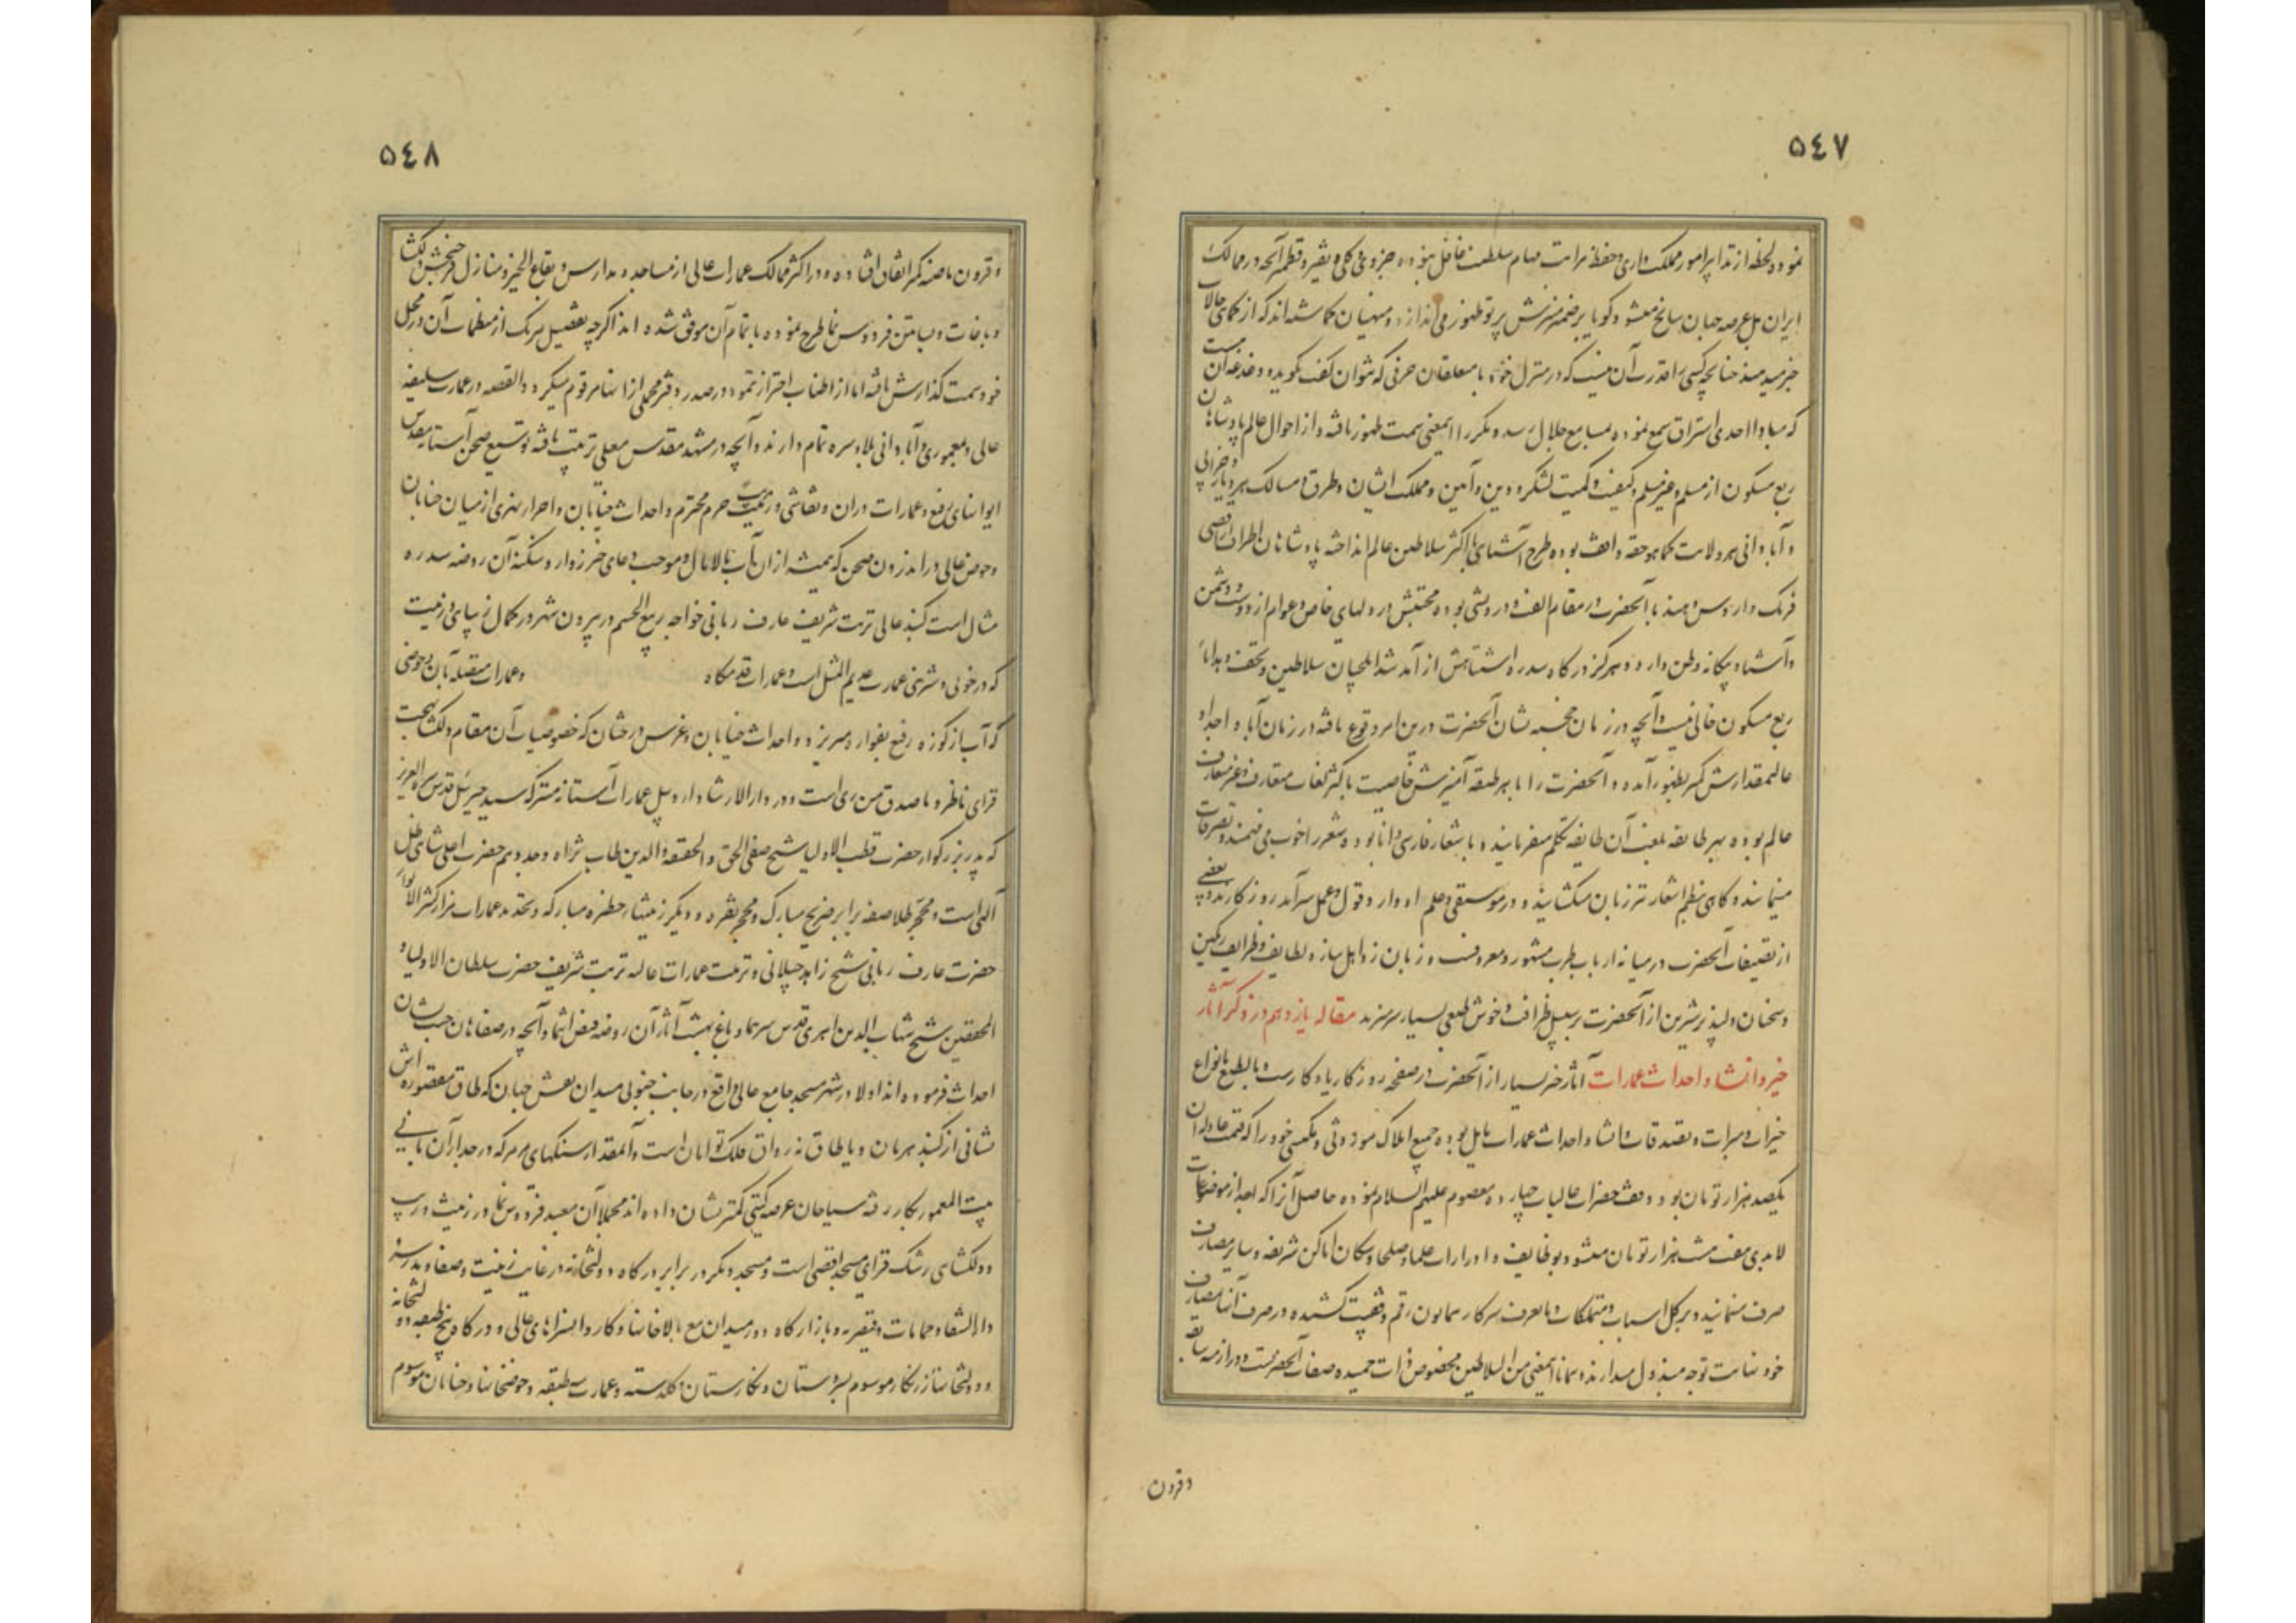 ٥٤٧
نموده لحظه از تدابیر امور مملکت داری و حفظ مراتب مهام سلطنت غافل نبوده جزوی و کلی و نقیر و قطمیر آنچه در ممالک
ایران بل عرصه جهان سانح میشود گویا بر ضمیر منیرش پرتو ظهور می اندازد و منهیان گماشته اند که از کماهی حالات
خبر میرسد چنانچه کسی را قدرت آن نیست که در منزل خود با متعلقان حرفی که نتوان گفت بگوید و دغدغه آن هست
که مبادا احدی استراق سمع نموده بمسامع جلال رسد و مکرر این معنی سمت ظهور یافته و از احوال عالم پادشاهان
ربع مسکون از مسلم و غیر مسلم و کیفیت و کمیت لشکر و دین و آیین و مملکت ایشان و طرق و مسالک هر دیار و خرابی
و آبادانی هر ولایت کماهو حقه واقف بوده طرح آشنایی با اکثر سلاطین عالم انداخته پادشاهان اطراف اقصی
فرنک و اروس و هند با آنحضرت در مقام الفت و دوستی بوده محبتش در دلهای خاص و عوام از دوست و دشمن
و آشنا و بیگانه وطن دارد و هرگز درگاه سدره اشتباهش از آمد شد ایلچیان سلاطین و تحف و هدایای
ربع مسکون خالی نیست و آنچه در زمان خجسته نشان آنحضرت درین امر وقوع یافته در زمان آبا و اجداد
عالیمقدارش کمتر بظهور آمده و آنحضرت را با هر طبقه آمیزش خاصیست باکثر لغات متعارف و غیر متعارف
عالم بوده بهر طایفه بلغت آن طایفه تکلم میفرمایند و باشعار فارسی دانا بوده شعر را خوب می فهمند و تصرفات
مینمایند و گاهی بنظم اشعار تر زبان میکشایند و در موسیقی و علم ادوار و قول و عمل سرآمد روزگارند و بعضی
از تصنیفات آنحضرت در میانه ارباب طرب مشهور و معروفست و زبان زد اهل ساز و لطایف و ظرایف رنگین
و سخنان دلپذیر شیرین از آنحضرت بر سبیل ظرافت و خوش طبعی بسیار سر میزند مقاله یازدهم در ذکر آثار
خیر و انشا و احداث عمارات آثار خیر بسیار از آنحضرت در صفحه روزگار یادگارست و بالطبع بانواع
خیرات و مبرات و تصدقات و انشا و احداث عمارات مایل بوده جمیع املاک موروثی و مکتسبی خود را که قیمت عادله آن
یکصد هزار تومان بود وقف حضرات عالیات چهارده معصوم علیهم السلام نموده حاصل آنرا که بعد از موضوعات
لابدی هفت هشت هزار تومان میشود بوظایف و ادرارات علما و صلحا و سکان اماکن شریفه و سایر مصارف
صرف مینمایند و بر کل اسباب و متملکات و مایعرف سرکار همایون رقم وقفیت کشیده در صرف آن بمصارف
خود نهایت توجه مبذول میدارند و همانا این معنی من السلاطین مخصوص ذات حمیده صفات آنحضرتست و در ازمنه سابقه
و قرون
٥٤٨
و قرون ماضیه کمتر اتفاق افتاده و در اکثر ممالک عمارات عالی از مساجد و مدارس و بقاع الخیر و منازل فرح بخش دلگشا
و باغات و بساتین فردوس نما طرح نموده باتمام آن موفق شده اند اگرچه تفصیل هریک از منظمات آن در محل
خود سمت گذارش یافته اما از اطناب احتراز نموده در صدر دفتر مجملی از آنها مرقوم میگردد القصه در عمارت سلیقه
عالی و بمعموری و آبادانی بلاد سره تمام دارند و آنچه در مشهد مقدس معلی ترتیب یافته توسیع صحن آستانه مقدس
ایوانهای رفیع و عمارات در آن و نقاشی و زینت حرم محترم و احداث خیابان و اجرای نهری از میان خیابان
و حوض عالی در اندرون صحن که همیشه از آن آب مالامال و موجب دعای خیر زوار و سکنه آن روضه سدره
مثال است گنبد عالی تربت شریف عارف ربانی خواجه ربیع الخیثم در بیرون شهر در کمال زیبایی و زینت
که در خوبی و شیرینی عمارت عدیم المثل است و عمارات قدمگاه و عمارات متصله بآن و حوضی
که آب از کوزه رفیع بفواره میریزد و احداث خیابان و غرس درختان که خصوصیات آن مقام دلگشا بهجت
فزای ناظر و ماصدق من رای است و در دار الارشاد اردبیل عمارات آستانه متبرکه سید جبرئیل قدس سره العزیز
که پدر بزرگوار حضرت قطب الاولیا شیخ صفی الحق و الحقیقة و الدین طاب ثراه و جد دهم حضرت اعلی شاهی ظل
الهی است و محجر طلا صفه برابر ضریح مبارک و محجر نقره و دیگر زینتهای حظیره مبارکه و تجدید عمارات مزار کثیر الانوار
حضرت عارف ربانی شیخ زاهد جیلانی و ترتیب عمارات عالیه تربت شریف حضرت سلطان الاولیاء
المحققین شیخ شهاب الدین اهری قدس سرهما و باغ بهشت آثار آن روضه فیض انتما و آنچه در صفاهان جنت نشان
احداث فرموده اند اولا در شهر مسجد جامع عالی واقع در جانب جنوبی میدان نقش جهان که طاق مقصوره اش
مثانی از گنبد هرمان و با طاق نه رواق فلک توامان است و آنمقدار سنگهای مرمر که در جدار آن ثانی
بیت المعمور بکار رفته سیاحان عرصه گیتی کمتر نشان داده اند مجملا آن معبد فردوس نما در زینت و زیب
و دلگشایی رشک فزای مسجد اقصی است و مسجد دیگر در برابر درگاه دولتخانه در غایت زینت و صفا و مدرسه
دار الشفا و حمامات و قیصریه و بازارگاه دور میدان مع بالاخانها و کاروانسراهای عالی و درگاه پنج طبقه دولتخانه
و دولتخانها زرنگار موسوم بسروستان و نگارستان و گلدسته و عمارت سه طبقه و حوضخانها و خیابان موسوم